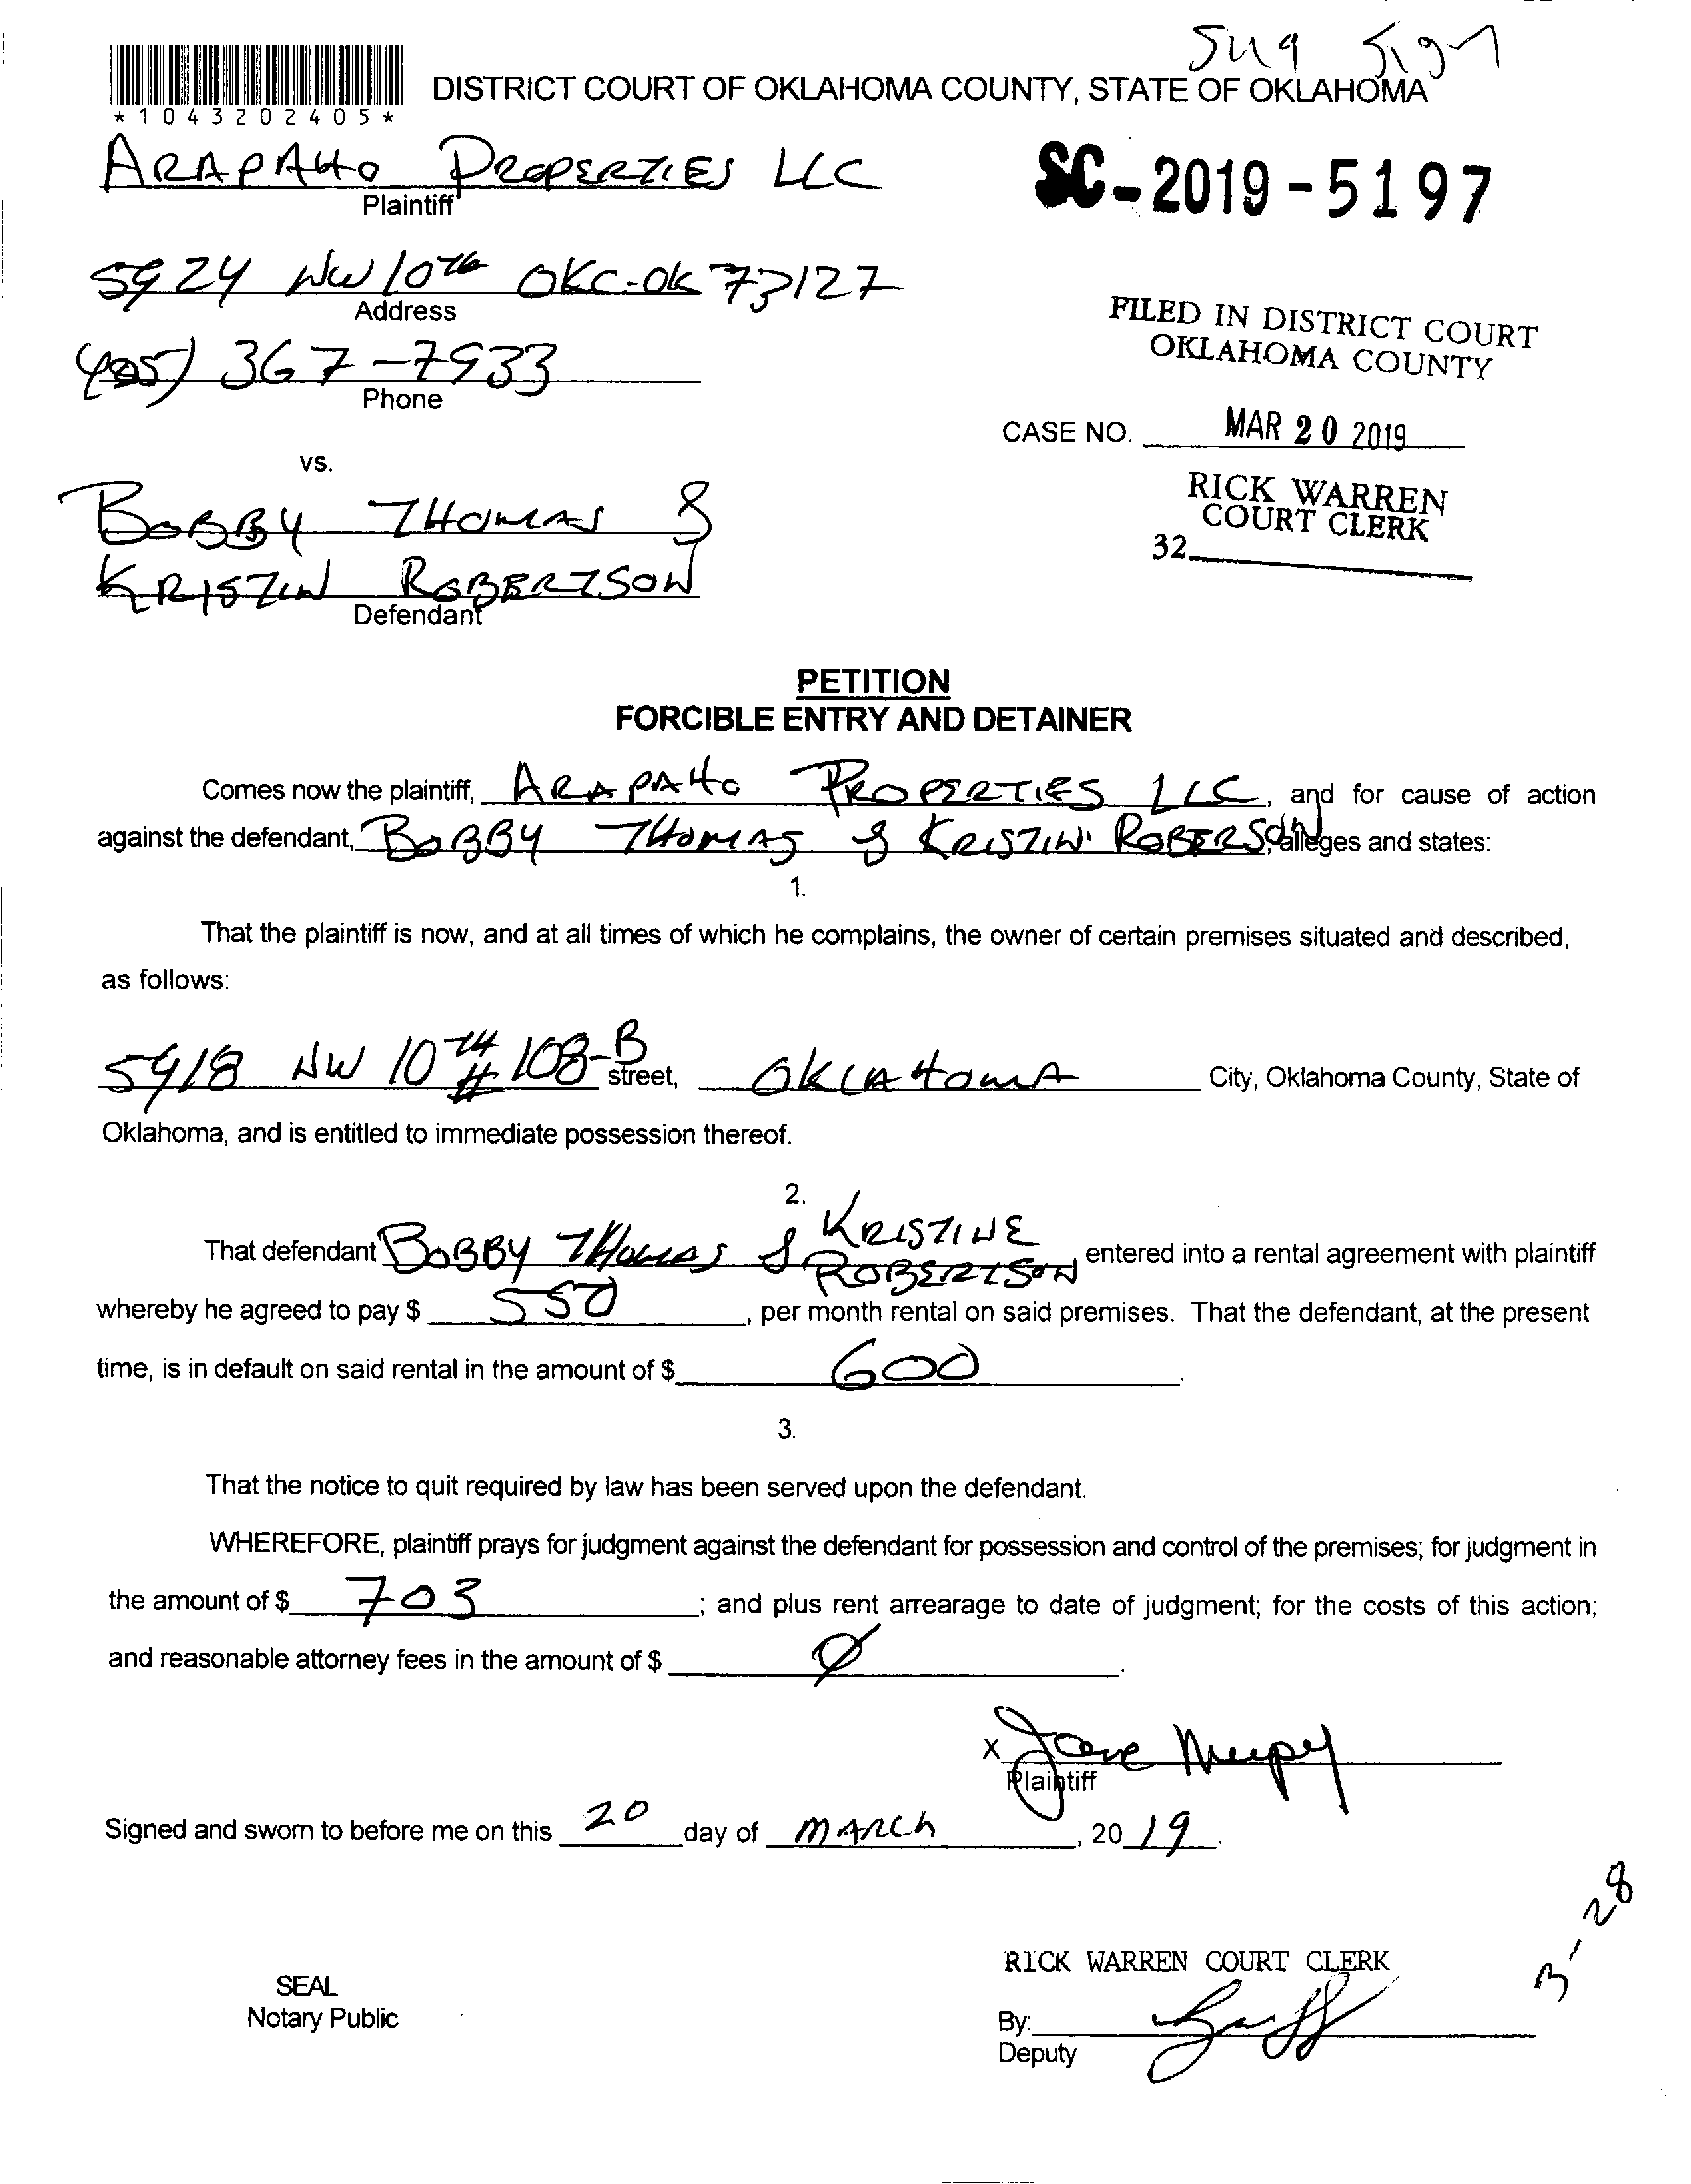 *1043202405*
DISTRICT COURT OF OKLAHOMA COUNTY, STATE OF OKLAHOMA
ARAPAHO PROPERTIES LLC
Plaintiff
SC-2019-5197
5924 NW 10TH OKC-OK 73127
Address
FILED IN DISTRICT COURT
OKLAHOMA COUNTY
(405) 367-7933
Phone
CASE NO. MAR 20 2019
vs.
RICK WARREN
COURT CLERK
32
BOBBY THOMAS &
KRISTIN ROBERTSON
Defendant
PETITION
FORCIBLE ENTRY AND DETAINER
Comes now the plaintiff, ARAPAHO PROPERTIES LLC, and for cause of action
against the defendant, BOBBY THOMAS & KRISTIN ROBERSON, alleges and states:
1.
That the plaintiff is now, and at all times of which he complains, the owner of certain premises situated and described,
as follows:
5918 NW 10TH # 108-B street, OKLAHOMA City, Oklahoma County, State of
Oklahoma, and is entitled to immediate possession thereof.
2.
That defendant BOBBY THOMAS & KRISTINE ROBERTSON entered into a rental agreement with plaintiff
whereby he agreed to pay $ 550, per month rental on said premises. That the defendant, at the present
time, is in default on said rental in the amount of $ 600.
3.
That the notice to quit required by law has been served upon the defendant.
WHEREFORE, plaintiff prays for judgment against the defendant for possession and control of the premises; for judgment in
the amount of $ 703; and plus rent arrearage to date of judgment; for the costs of this action;
and reasonable attorney fees in the amount of $ 0.
X
Plaintiff
Signed and sworn to before me on this 20 day of MARCH, 2019.
3-28
RICK WARREN COURT CLERK
SEAL
Notary Public
By:
Deputy